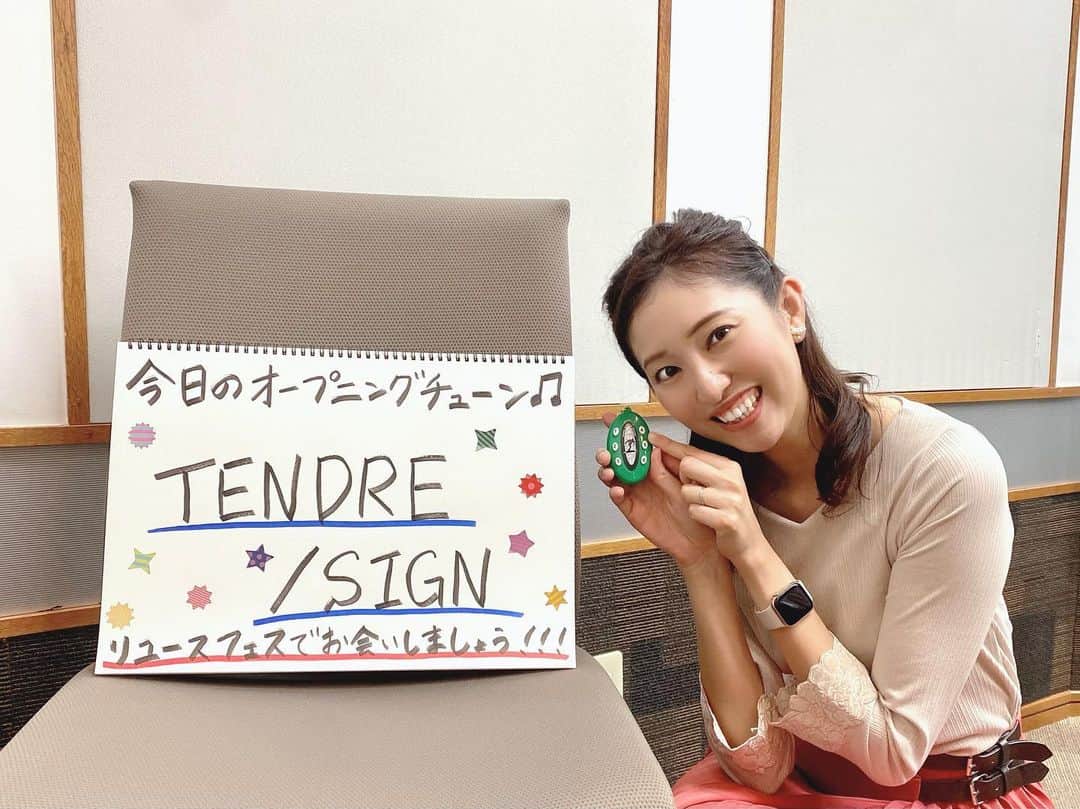 今日のオープニングチューン♫
TENDRE
/SIGN
リユースフェスでお会いしましょう!!!